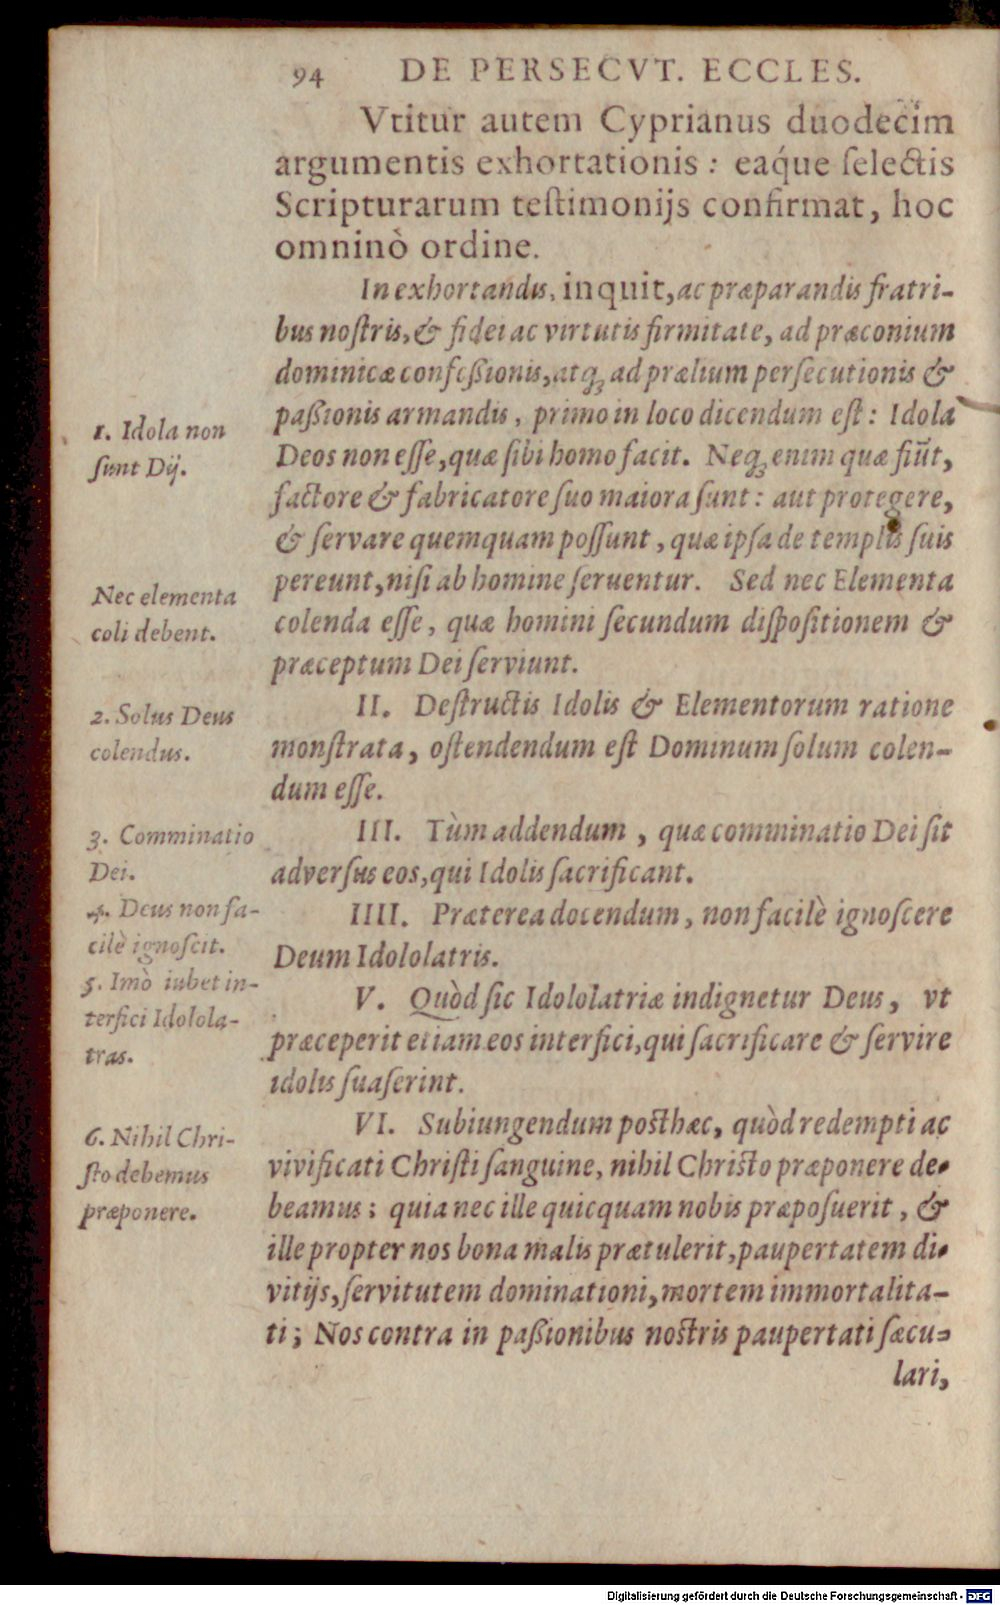 94 DE PERSECVT. ECCLES.
Vtitur autem Cyprianus duodecim
argumentis exhortationis : eáque ſelectis
Scripturarum teſtimonijs confirmat, hoc
omninò ordine.
In exhortandis, inquit, ac præparandis fratri-
bus noſtris, & fidei ac virtutis firmitate, ad præconium
dominicæ confeßionis, atq́ꝫ ad prælium perſecutionis &
paßionis armandis, primo in loco dicendum eſt: Idola
Deos non eſſe, quæ ſibi homo facit. Neqꝫ enim quæ fiūt,
factore & fabricatore ſuo maiora ſunt: aut protegere,
& ſervare quemquam poſſunt, quæ ipſa de templis ſuis
pereunt, niſi ab homine ſeruentur. Sed nec Elementa
colenda eſſe, quæ homini ſecundum diſpoſitionem &
præceptum Dei ſerviunt.
II. Deſtructis Idolis & Elementorum ratione
monſtrata, oſtendendum eſt Dominum ſolum colen-
dum eſſe.
III. Tùm addendum, quæ comminatio Dei ſit
adverſus eos, qui Idolis ſacrificant.
IIII. Præterea docendum, non facilè ignoſcere
Deum Idololatris.
V. Quòd ſic Idololatriæ indignetur Deus, vt
præceperit etiam eos interfici, qui ſacrificare & ſervire
idolis ſuaſerint.
VI. Subiungendum posthæc, quòd redempti ac
vivificati Chriſti ſanguine, nihil Christo præponere de-
beamus; quia nec ille quicquam nobis præpoſuerit, &
ille propter nos bona malis prætulerit, paupertatem di-
vitijs, ſervitutem dominationi, mortem immortalita-
ti; Nos contra in paßionibus nostris paupertati ſæcu-
lari,
1. Idola non
ſunt Dij.
Nec elementa
coli debent.
2. Solus Deus
colendus.
3. Comminatio
Dei.
4. Deus non fa-
cilè ignoſcit.
5. Imò iubet in-
terfici Idolola-
tras.
6. Nihil Chri-
ſto debemus
præponere.
Digitalisierung gefördert durch die Deutsche Forschungsgemeinschaft - DFG